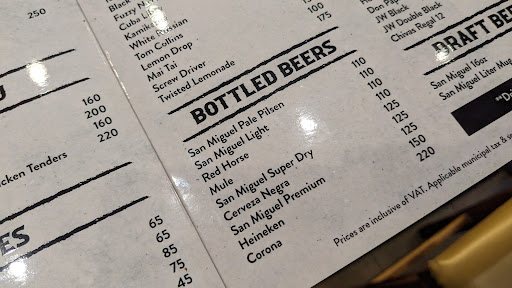 250
160
200
220
cken Tenders
ES
65
65
85
75
45
Black
Fuzzy N
Cuba L
Kamika
White Russian
Tom Collins
Lemon Drop
Mai Tai
Screw Driver
Twisted Lemonade
100
175
BOTTLED BEERS
San Miguel Pale Pilsen 110
San Miguel Light 110
Red Horse 110
Mule 110
San Miguel Super Dry 125
Cerveza Negra 125
San Miguel Premium 125
Heineken 150
Corona 220
Prices are inclusive of VAT. Applicable municipal tax & se
Don Pa
JW Black
JW Double Black
Chivas Regal 12
DRAFT BEE
San Miguel 16oz
San Miguel Liter Mug